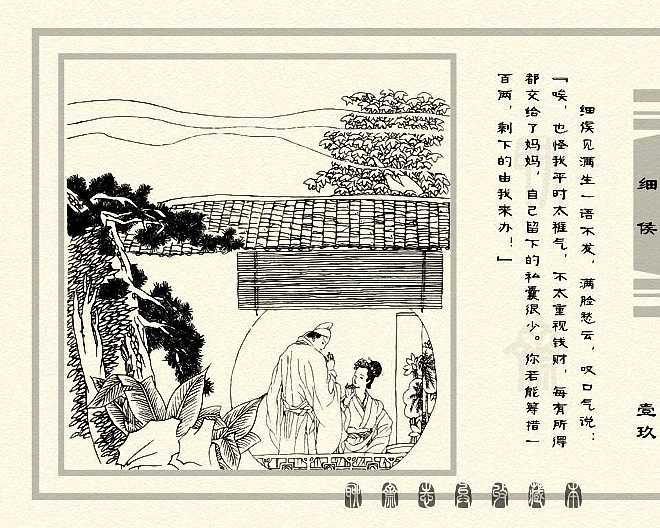 细侯
壹玖
细侯见满生一语不发，满脸愁云，叹口气说：
「唉，也怪我平时太稚气，不太重视钱财，每有所得
都交给了妈妈，自己留下的私囊很少。你若能筹措一
百两，剩下的由我来办！」